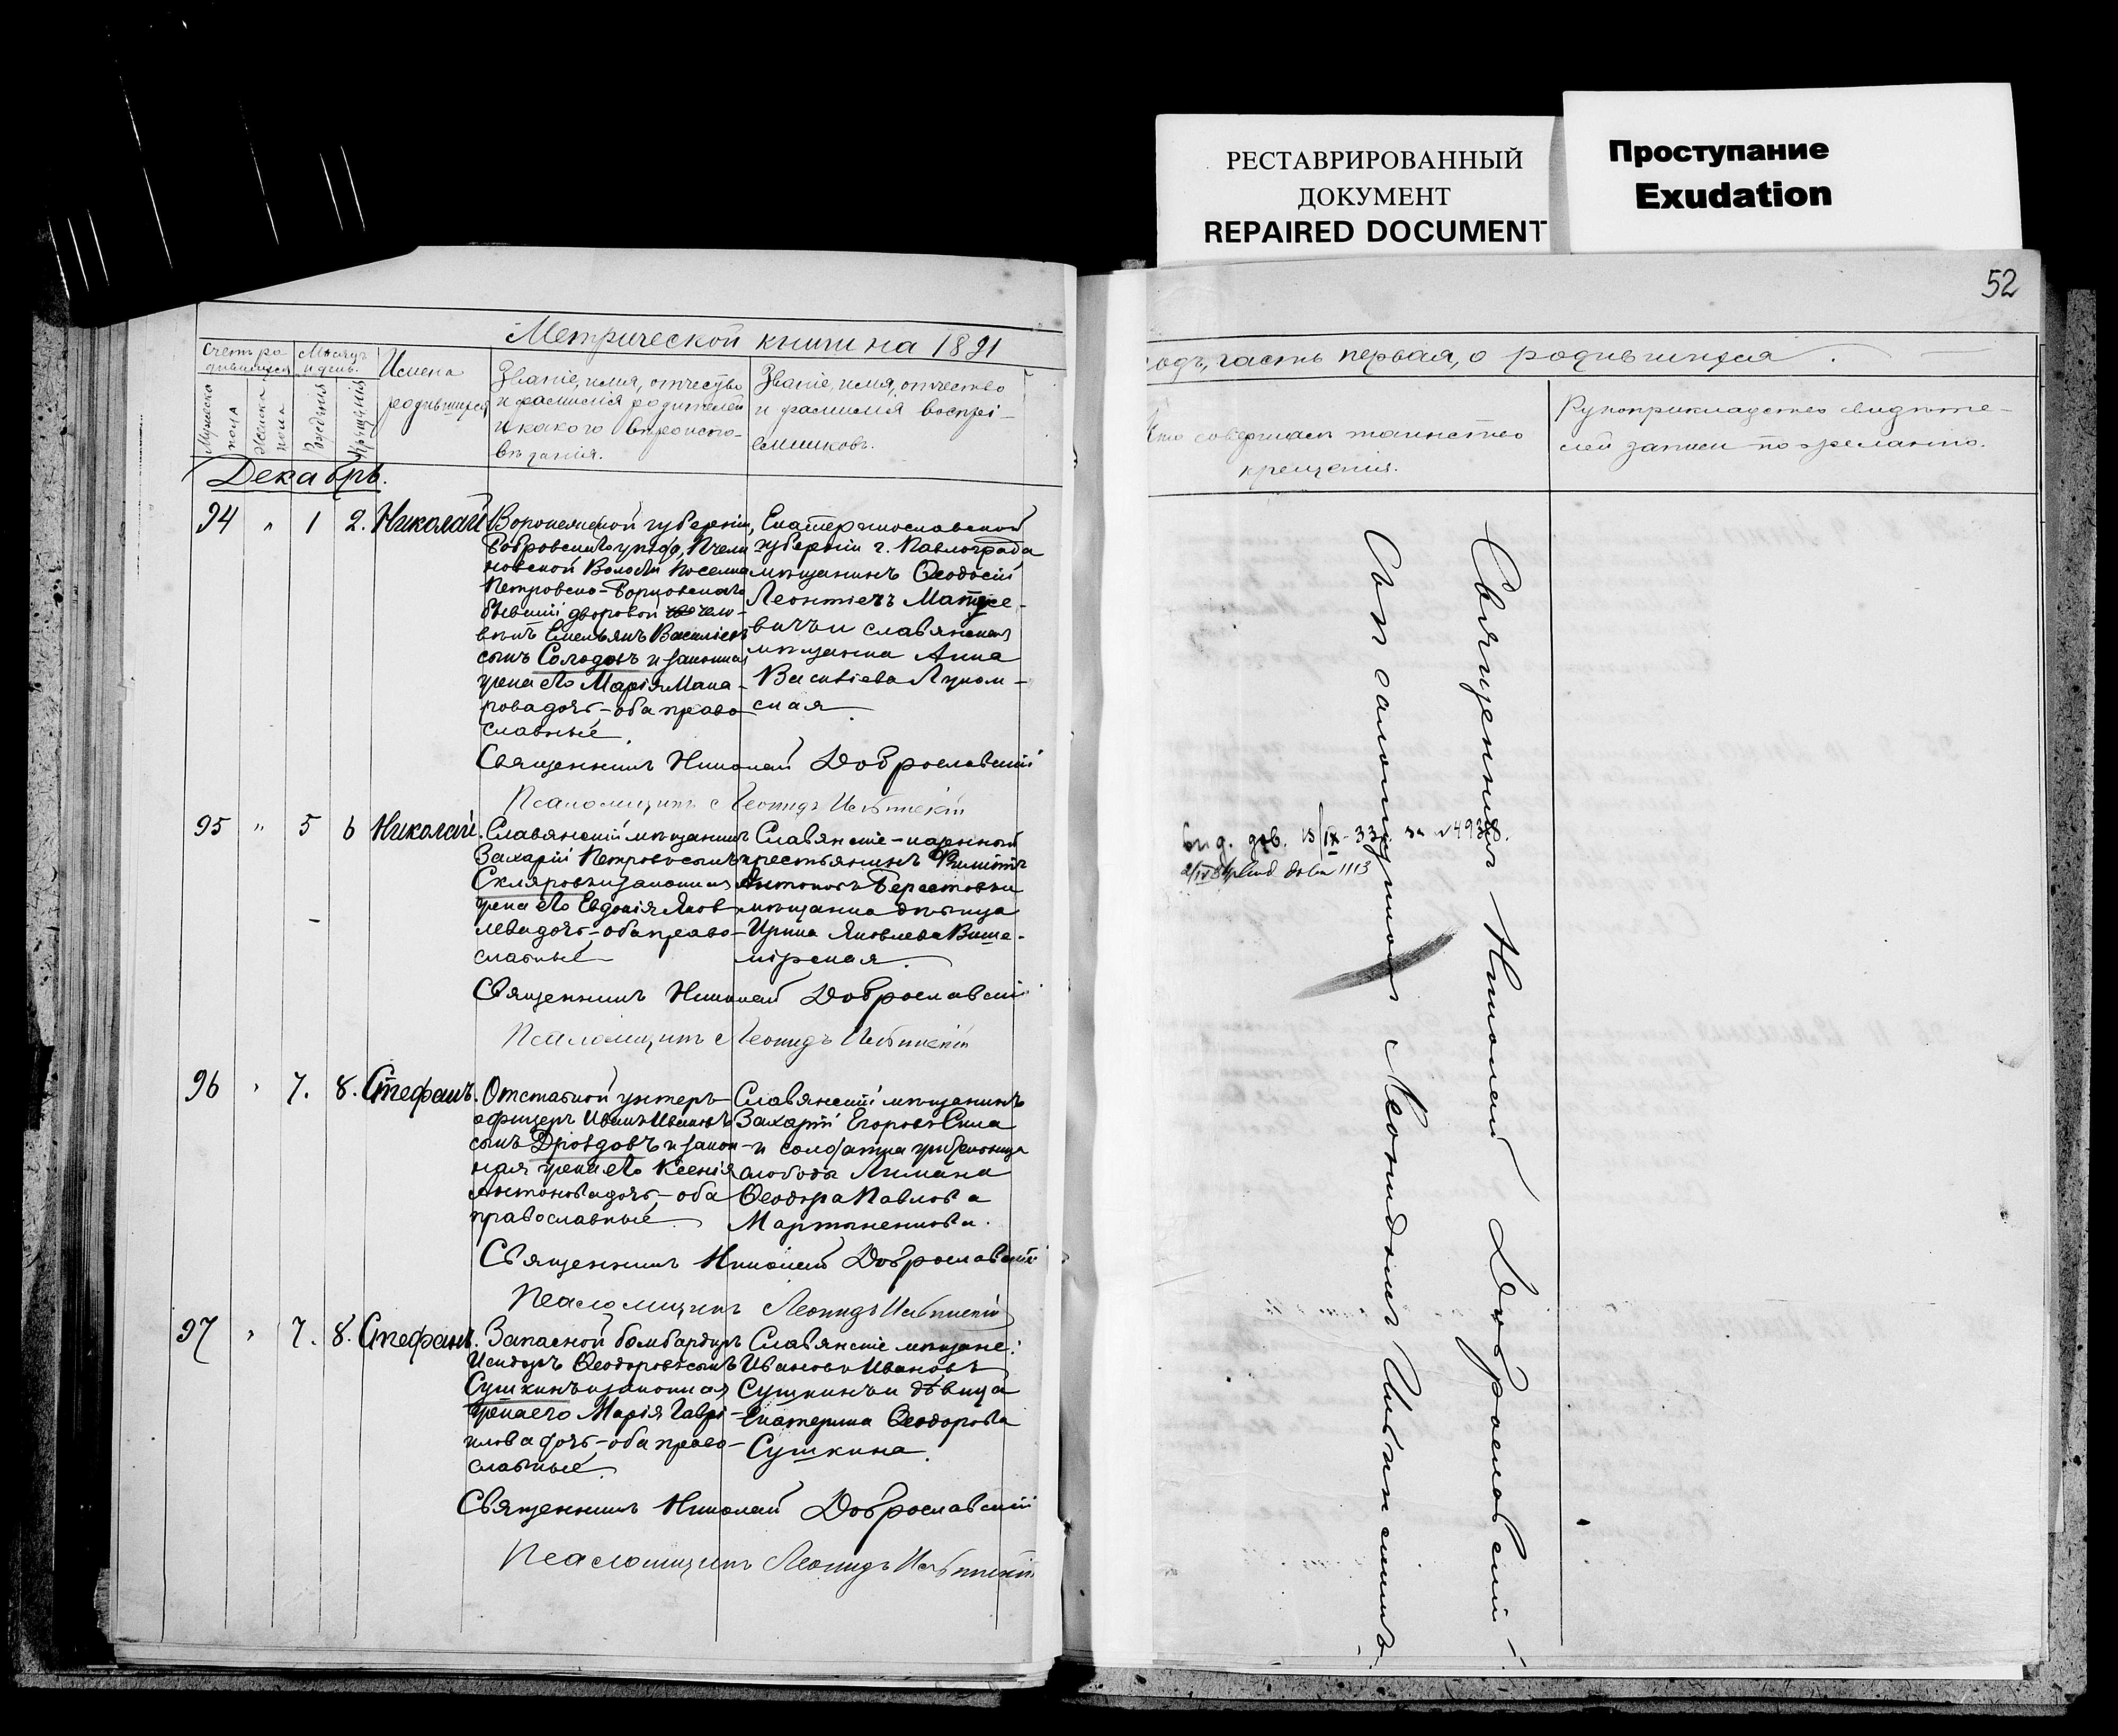 РЕСТАВРИРОВАННЫЙ
ДОКУМЕНТ
REPAIRED DOCUMENT
Проступание
Exudation
52
Метрической книги на 1891
годъ, часть первая, о родившихся
Счетъ ро
дившихся
Мѣсяцъ
и день.
Мужеска
пола
Женска
пола
Рожденія
Крещенія
Имена
родившихся
Званіе, имя, отчество
и фамилія родителей
и какого вѣроиспо-
вѣданія.
Званіе, имя, отчество
и фамилія воспрі-
емниковъ.
Кто совершалъ таинство
крещенія.
Рукоприкладство свидѣте-
лей записи по желанію.
Декабрь.
94 " 1 2. Николай
Воронежской губерніи,
Бобровскаго уѣзда, Пчели
новской Волости Поселка
Петровско-Борковскаго
бывшій дворовой чело-
вѣкъ Емельянъ Василіевъ
сынъ Солодовъ и законная
жена его Марія Мака-
рова дочь - оба право
славные
Екатеринославской
губерніи г. Павлограда
мѣщанинъ Ѳеодосій
Леонтіевъ Матуже-
вичъ и славянская
мѣщанка Анна
Василіева Луком-
ская
Священникъ Николай Доброславскій
Псаломщикъ Леонидъ
95 " 5 6 Николай.
Славянскій мѣщанинъ
Захарій Петровъ сынъ
Скляровъ и законная
жена его Евдокія Яков
лева дочь - оба право-
славные
Славянскіе - казенный
крестьянинъ Филиппъ
Антоновъ Берестовъ и
мѣщанка дѣвица
Ирина Яковлева Више-
мірская
Священникъ Николай Доброславскій
Псаломщикъ Леонидъ
96 " 7. 8. Стефанъ.
Отставной унтеръ-
офицеръ Иванъ Ивановъ
сынъ Дроздовъ и закон-
ная жена его Ксенія
Антонова дочь - оба
православные
Славянскій мѣщанинъ
Захарій Егоровъ Сила
и солдатка
слобода Лимана
Ѳеодора Павлова
Мартыненкова.
Священникъ Николай Доброславскій
Псаломщикъ Леонидъ
97 " 7. 8. Стефанъ.
Запасной бомбардиръ
Исидоръ Ѳеодоровъ сынъ
Сушкинъ и законная
жена его Марія Гаврі-
илова дочь - оба право-
славные
Славянскіе мѣщане:
Ивановъ
Сушкинъ и дѣвица
Екатерина Ѳеодорова
Сушкина.
Священникъ Николай Доброславскій
Псаломщикъ Леонидъ
Священникъ Николай Доброславскій
Псаломщикъ Леонидъ